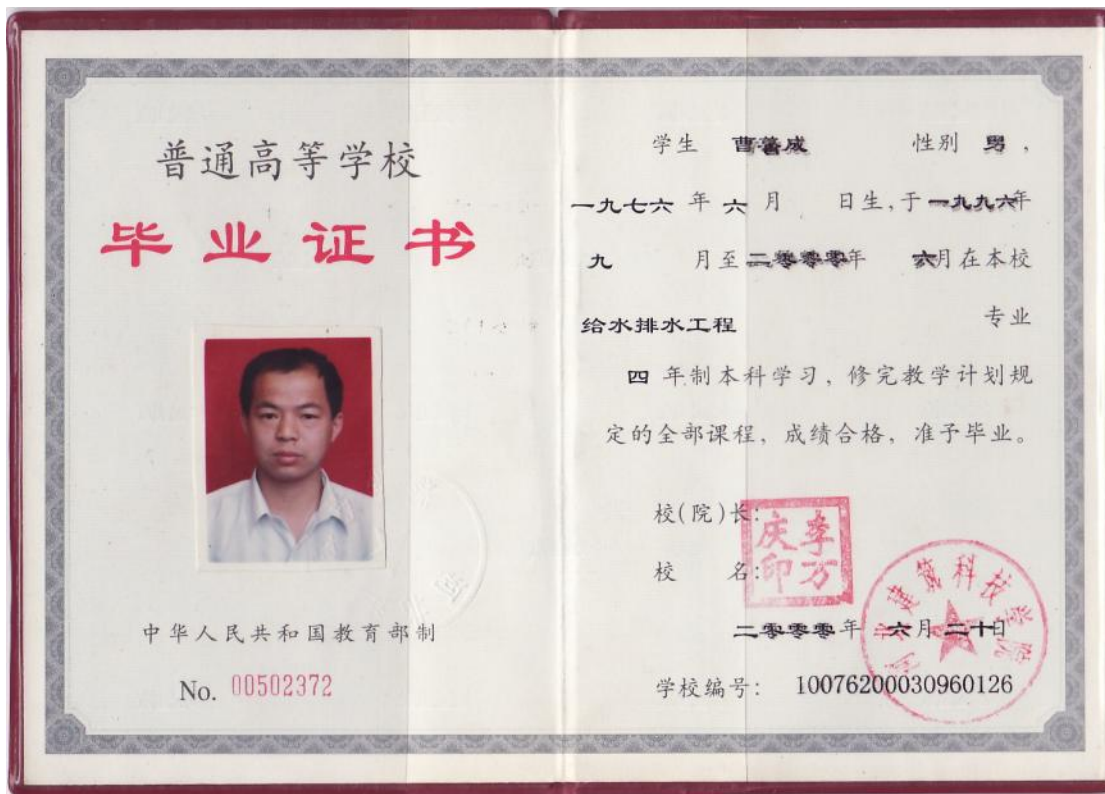 普通高等学校
毕业证书
中华人民共和国教育部制
No. 00502372
学生 曹蕾成 性别 男，
一九七六 年 六 月 日生，于 一九九六年
九 月至 二零零零年 六月在本校
给水排水工程 专业
四 年制本科学习，修完教学计划规
定的全部课程，成绩合格，准予毕业。
校(院)长：
李万庆印
校 名：
河北建筑科技学院
二零零零年 六月二十日
学校编号： 10076200030960126